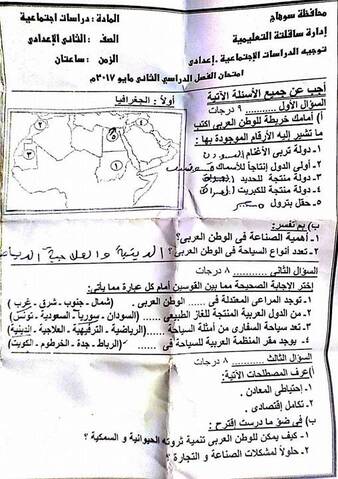 محافظة سوهاج
إدارة ساقلتة التعليمية
توجيه الدراسات الإجتماعية - إعدادى
المادة : دراسات اجتماعية
الصف : الثانى الإعدادى
الزمن : ساعتان
امتحان الفصل الدراسي الثانى مايو ٢٠١٧م
أجب عن جميع الأسئلة الآتية
أولاً : الجغرافيا
السؤال الأول .......... ٩ درجات
أ) أمامك خريطة للوطن العربى اكتب
ما تشير إليه الأرقام الموجودة بها :
١- دولة تربى الأغنام
٢- أولى الدول إنتاجاً للأسماك
٣- دولة منتجة للحديد
٤- دولة منتجة للكبريت
٥- حقل بترول
ب) بم تفسر :
١- أهمية الصناعة فى الوطن العربى؟
٢- تعدد أنواع السياحة فى الوطن العربى؟
السؤال الثانى .......... ٨ درجات
إختر الإجابة الصحيحة مما بين القوسين أمام كل عبارة مما يأتى:
١- توجد المراعى المعتدلة فى ...... الوطن العربى (شمال - جنوب - شرق - غرب)
٢- من الدول العربية المنتجة للغاز الطبيعى ..... (السودان - سوريا - السعودية - تونس)
٣- تعد سياحة السفارى من أمثلة السياحة .... (الرياضية - الترفيهية - العلاجية - الدينية)
٤- يوجد مقر المنظمة العربية للسياحة فى ...... (الرباط - جدة - الخرطوم - الكويت)
السؤال الثالث .......... ٨ درجات
أ) عرف المصطلحات الآتية:
١- إحتياطى المعادن .
٢- تكامل إقتصادى .
ب) فى ضوء ما درست إقترح :
١- كيف يمكن للوطن العربى تنمية ثروته الحيوانية و السمكية ؟
٢- حلولاً لمشكلات الصناعة و التجارة ؟